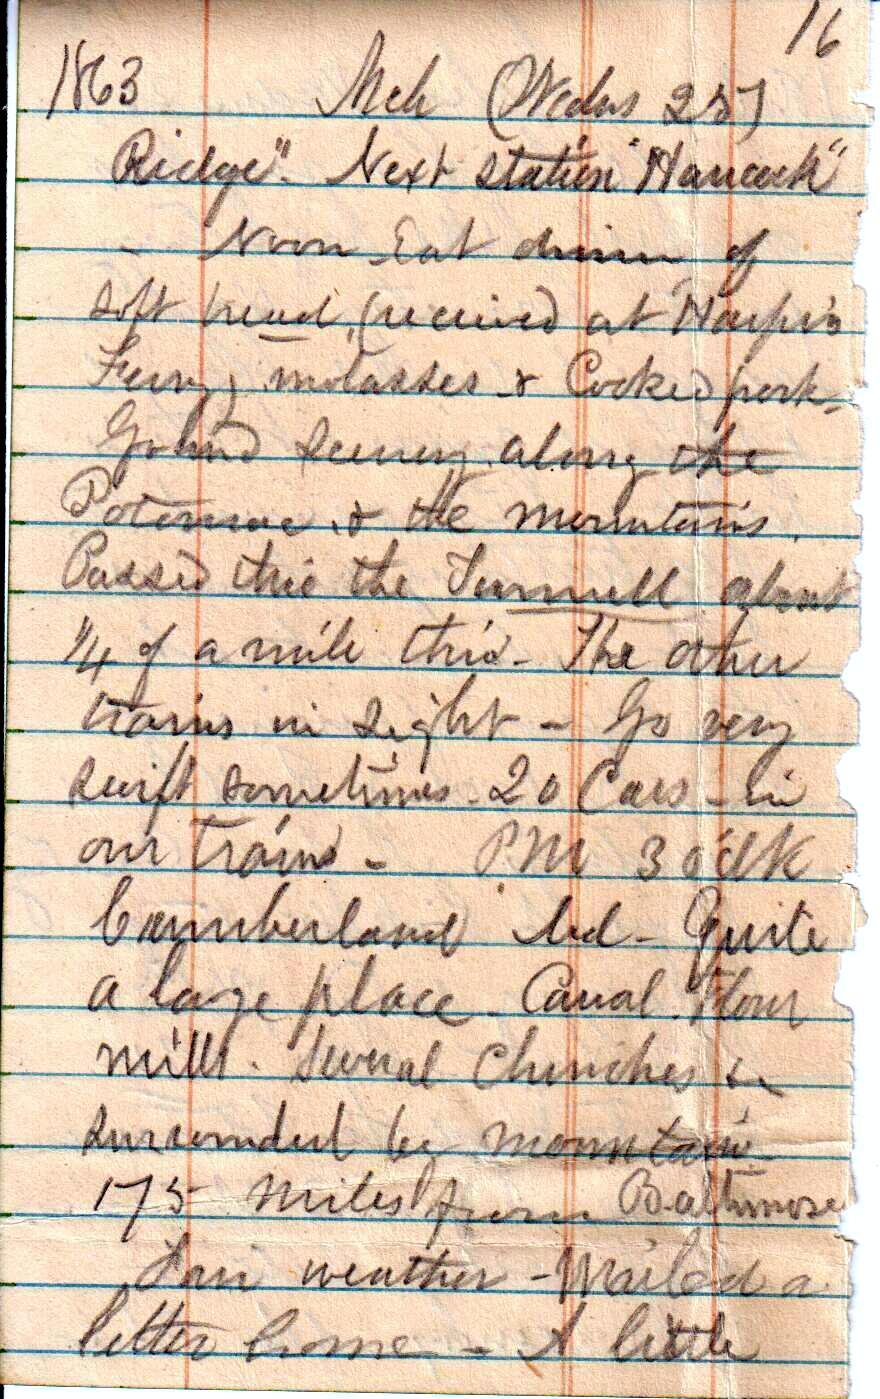 16
1863 Mch (Weds 25)
Ridge". Next station "Hancock"
- Noon Eat dinner of
soft bread, (received at Harper's
Ferry) molasses & Cooked pork.
Grand Scenery along the
Potomac & the mountains.
Passed thro the Tunnell about
1/4 of a mile thro - The other
trains in sight - Go very
swift sometimes - 20 Cars - in
our train - PM 3 o'clk
Cumberland Md - Quite
a large place - Canal. Flour
mills. Several Churches &
surrounded by mountains
175 miles from Baltimore
Fair weather - Mailed a
letter home - A little